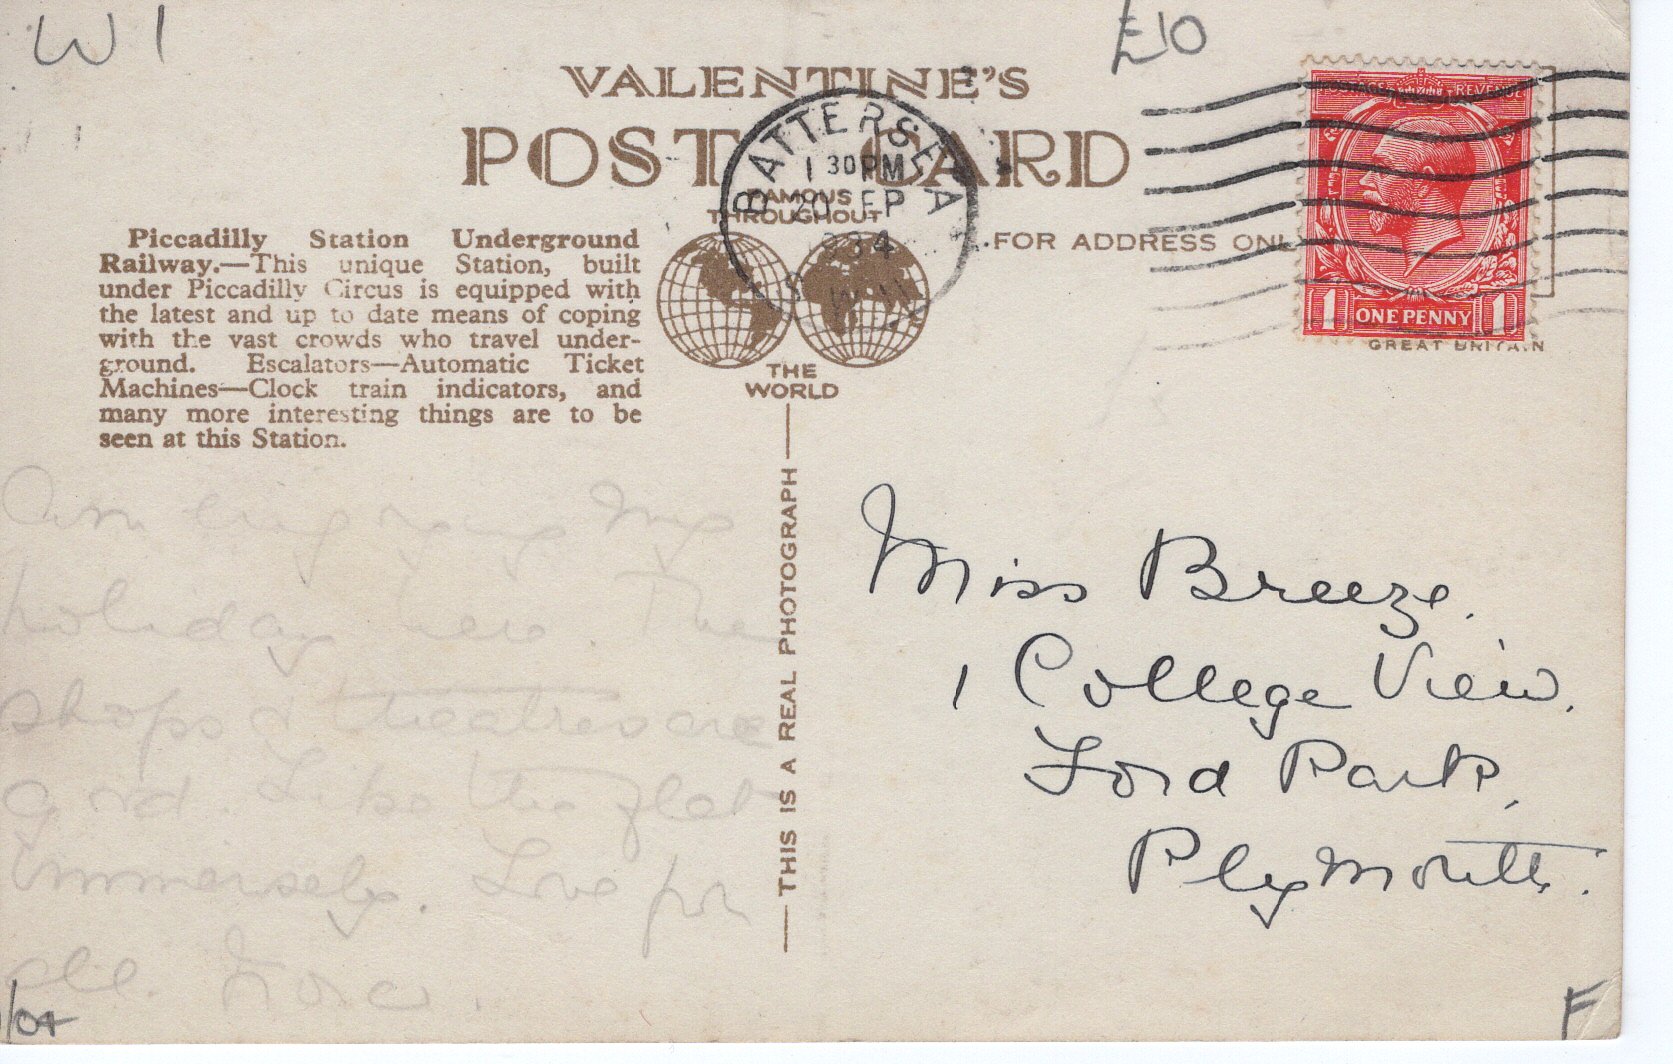 W1
£10
VALENTINE'S
POST CARD
BATTERSEA
1 30 PM
20 SEP
1934
S.W.11
POSTAGE REVENUE
1 ONE PENNY 1
FAMOUS
THROUGHOUT
THE
WORLD
FOR ADDRESS ONL
GREAT BRITAIN
Piccadilly Station Underground
Railway.—This unique Station, built
under Piccadilly Circus is equipped with
the latest and up to date means of coping
with the vast crowds who travel under-
ground. Escalators—Automatic Ticket
Machines—Clock train indicators, and
many more interesting things are to be
seen at this Station.
THIS IS A REAL PHOTOGRAPH
Am enjoying my
holiday here. The
shops & theatres are
good. Like the flat
immensely. Love for
all.
Miss Breeze.
1 College View,
Ford Park,
Plymouth.
/04
F